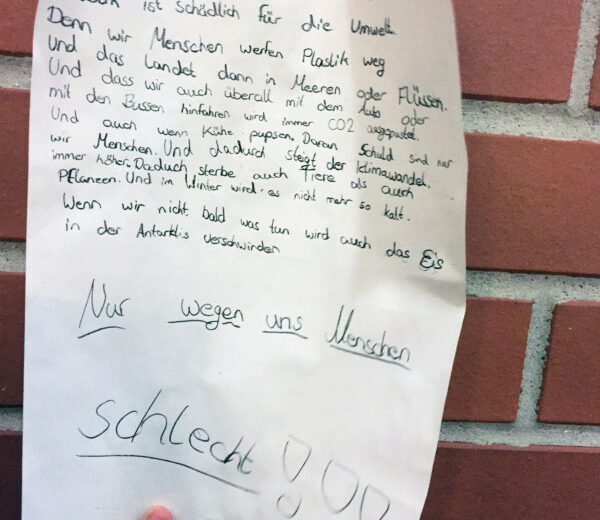 ist Schädlich für die Umwelt.
Denn wir Menschen werfen Plastik weg
und das Landet dann in Meeren oder Flüssen.
Und dass wir auch überall mit dem Auto oder
mit den Bussen hinfahren wird immer CO2 ausgepustet.
Und auch wenn Kühe pupsen. Daran Schuld sind nur
wir Menschen. Und dadurch steigt der Klimawandel.
immer höher. Daduch sterbe auch Tiere als auch
Pflanzen. Und im Winter wird es nicht mehr so kalt.
Wenn wir nicht bald was tun wird auch das Eis
in der Antarktis verschwinden
Nur wegen uns Menschen
schlecht!!!